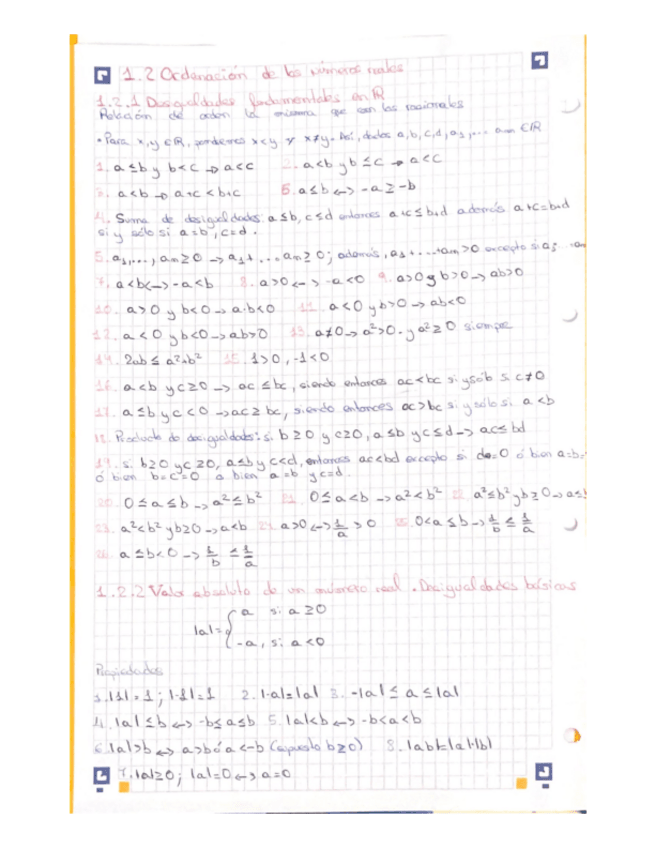 1.2 Ordenación de los números reales
1.2.1 Desigualdades fundamentales en R
Relación de orden la misma que con los racionales
• Para x,y ∈ R, pondremos x<y y x≠y. Así, dados a, b, c, d, a1, ... am ∈ R
1. a≤b y b<c → a<c 2. a<b y b≤c → a<c
3. a<b → a+c < b+c 6. a≤b ↔ -a ≥ -b
4. Suma de desigualdades: a≤b, c≤d entonces a+c≤b+d además a+c=b+d
si y sólo si a=b, c=d.
5. a1,..., am ≥0 → a1 + ... am ≥ 0; además, a1 + ...+am >0 excepto si a1
7. a<b ↔ -a<b 8. a>0 ↔ -a<0 9. a>0 y b>0 → ab>0
10. a>0 y b<0 → a·b<0 11. a<0 y b>0 → ab<0
12. a<0 y b<0 → ab>0 13. a≠0 → a²>0 - y a²≥0 siempre
14. 2ab ≤ a²+b² 15. 1>0, -1<0
16. a<b y c≥0 → ac ≤ bc, siendo entonces ac<bc si y sólo si c≠0
17. a≤b y c<0 → ac≥bc, siendo entonces ac>bc si y sólo si a<b
18. Producto de desigualdades: si b≥0 y c≥0, a≤b y c≤d → ac≤bd
19. si b≥0 y c≥0, a≤b y c<d, entonces ac<bd excepto si d=c=0 ó bien a=b=
ó bien b=c=0 o bien a=b y c=d.
20. 0≤a≤b → a²≤b² 21. 0≤a<b → a²<b² 22. a²≤b² y b≥0 → a≤b
23. a²<b² y b≥0 → a<b 24. a>0 ↔ 1/a > 0 25. 0<a≤b → 1/b ≤ 1/a
26. a≤b<0 → 1/b ≤ 1/a
1.2.2 Valor absoluto de un número real. Desigualdades básicas
|a|= { a si a≥0
-a, si a<0
Propiedades
1. |1|=1; |-1|=1 2. |-a|=|a| 3. -|a| ≤ a ≤ |a|
4. |a|≤b ↔ -b≤a≤b 5. |a|<b ↔ -b<a<b
6. |a|>b ↔ a>b ó a<-b (supuesto b≥0) 8. |ab|=|a|·|b|
7. |a|≥0; |a|=0 ↔ a=0